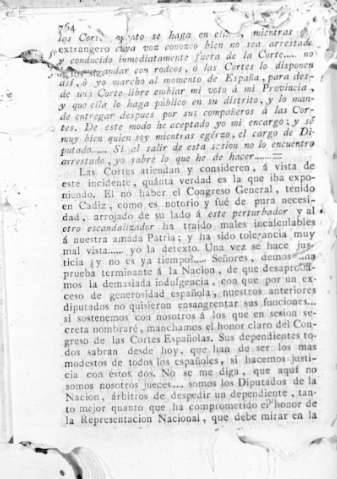 764
las Cortes se haga en mientras
extrangero cuya voz conozco bien no sea arrestado
y conducido inmediatamente fuera de la Corte.... no
andar con rodeos, ó las Córtes lo disponen
así, ó yo marcho al momento de España, para des-
de una Corte libre embiar mi voto á mi Provincia,
y que ella lo haga público en su distrito, y lo man-
de entregar despues por sus compañeros á las Cor-
tes. De este modo he aceptado yo mi encargo; y sé
muy bien quien soy mientras egerzo, el cargo de Di-
putado..... Si al salir de esta sesion no lo encuentro
arrestado, yo sabré lo que he de hacer.....
Las Córtes atiendan y consideren, á vista de
este incidente, quánta verdad es la que iba expo-
niendo. El no haber el Congreso General, tenido
en Cadiz, como es notorio y fué de pura necesi-
dad, arrojado de su lado á este perturbador y al
otro escandalizador ha traido males incalculables
á nuestra amada Patria; y ha sido tolerancia muy
mal vista..... yo la detexto. Una vez se hace jus-
ticia y no es ya tiempo.... Señores, demos una
prueba terminante á la Nacion, de que desaprobá-
mos la demasiada indulgencia, con que por un ex-
ceso de generosidad española, nuestros anteriores
diputados no quisieron ensangrentar sus funciones...
si sostenemos con nosotros á los que en sesion se-
creta nombraré, manchamos el honor claro del Con-
greso de las Cortes Españolas. Sus dependientes to-
dos sabran desde hoy, que han de ser los mas
modestos de todos los españoles, si hacemos justi-
cia con estos dos. No se me diga, que aquí no
somos nosotros jueces.... somos los Diputados de la
Nacion, árbitros de despedir un dependiente, tan-
to mejor quanto que ha comprometido el honor de
la Representacion Nacional, que debe mirar en la